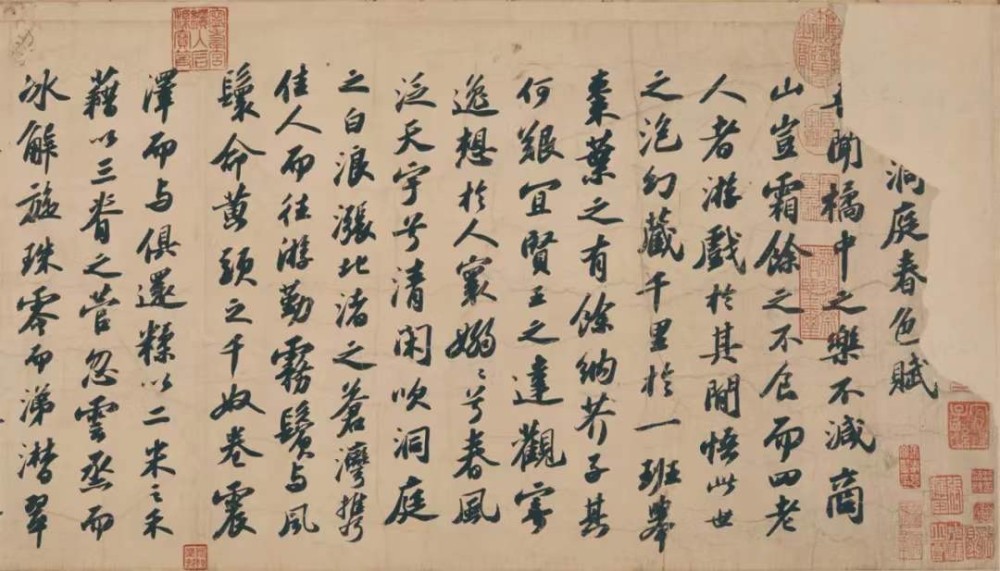 洞庭春色賦
聞橘中之樂不減商
山豈霜餘之不食而四老
人者游戲於其間悟此世
之泡幻藏千里於一班舉
棗葉之有餘納芥子其
何艱宜賢王之達觀寄
逸想於人寰嫋〻兮春風
泛天宇兮清閑吹洞庭
之白浪漲北渚之蒼灣携
佳人而往游勤霧鬢与風
鬟命黄頭之千奴卷震
澤而与俱還糅以二米之禾
藉以三脊之菅忽雲烝而
冰解旋珠零而涕潸翠